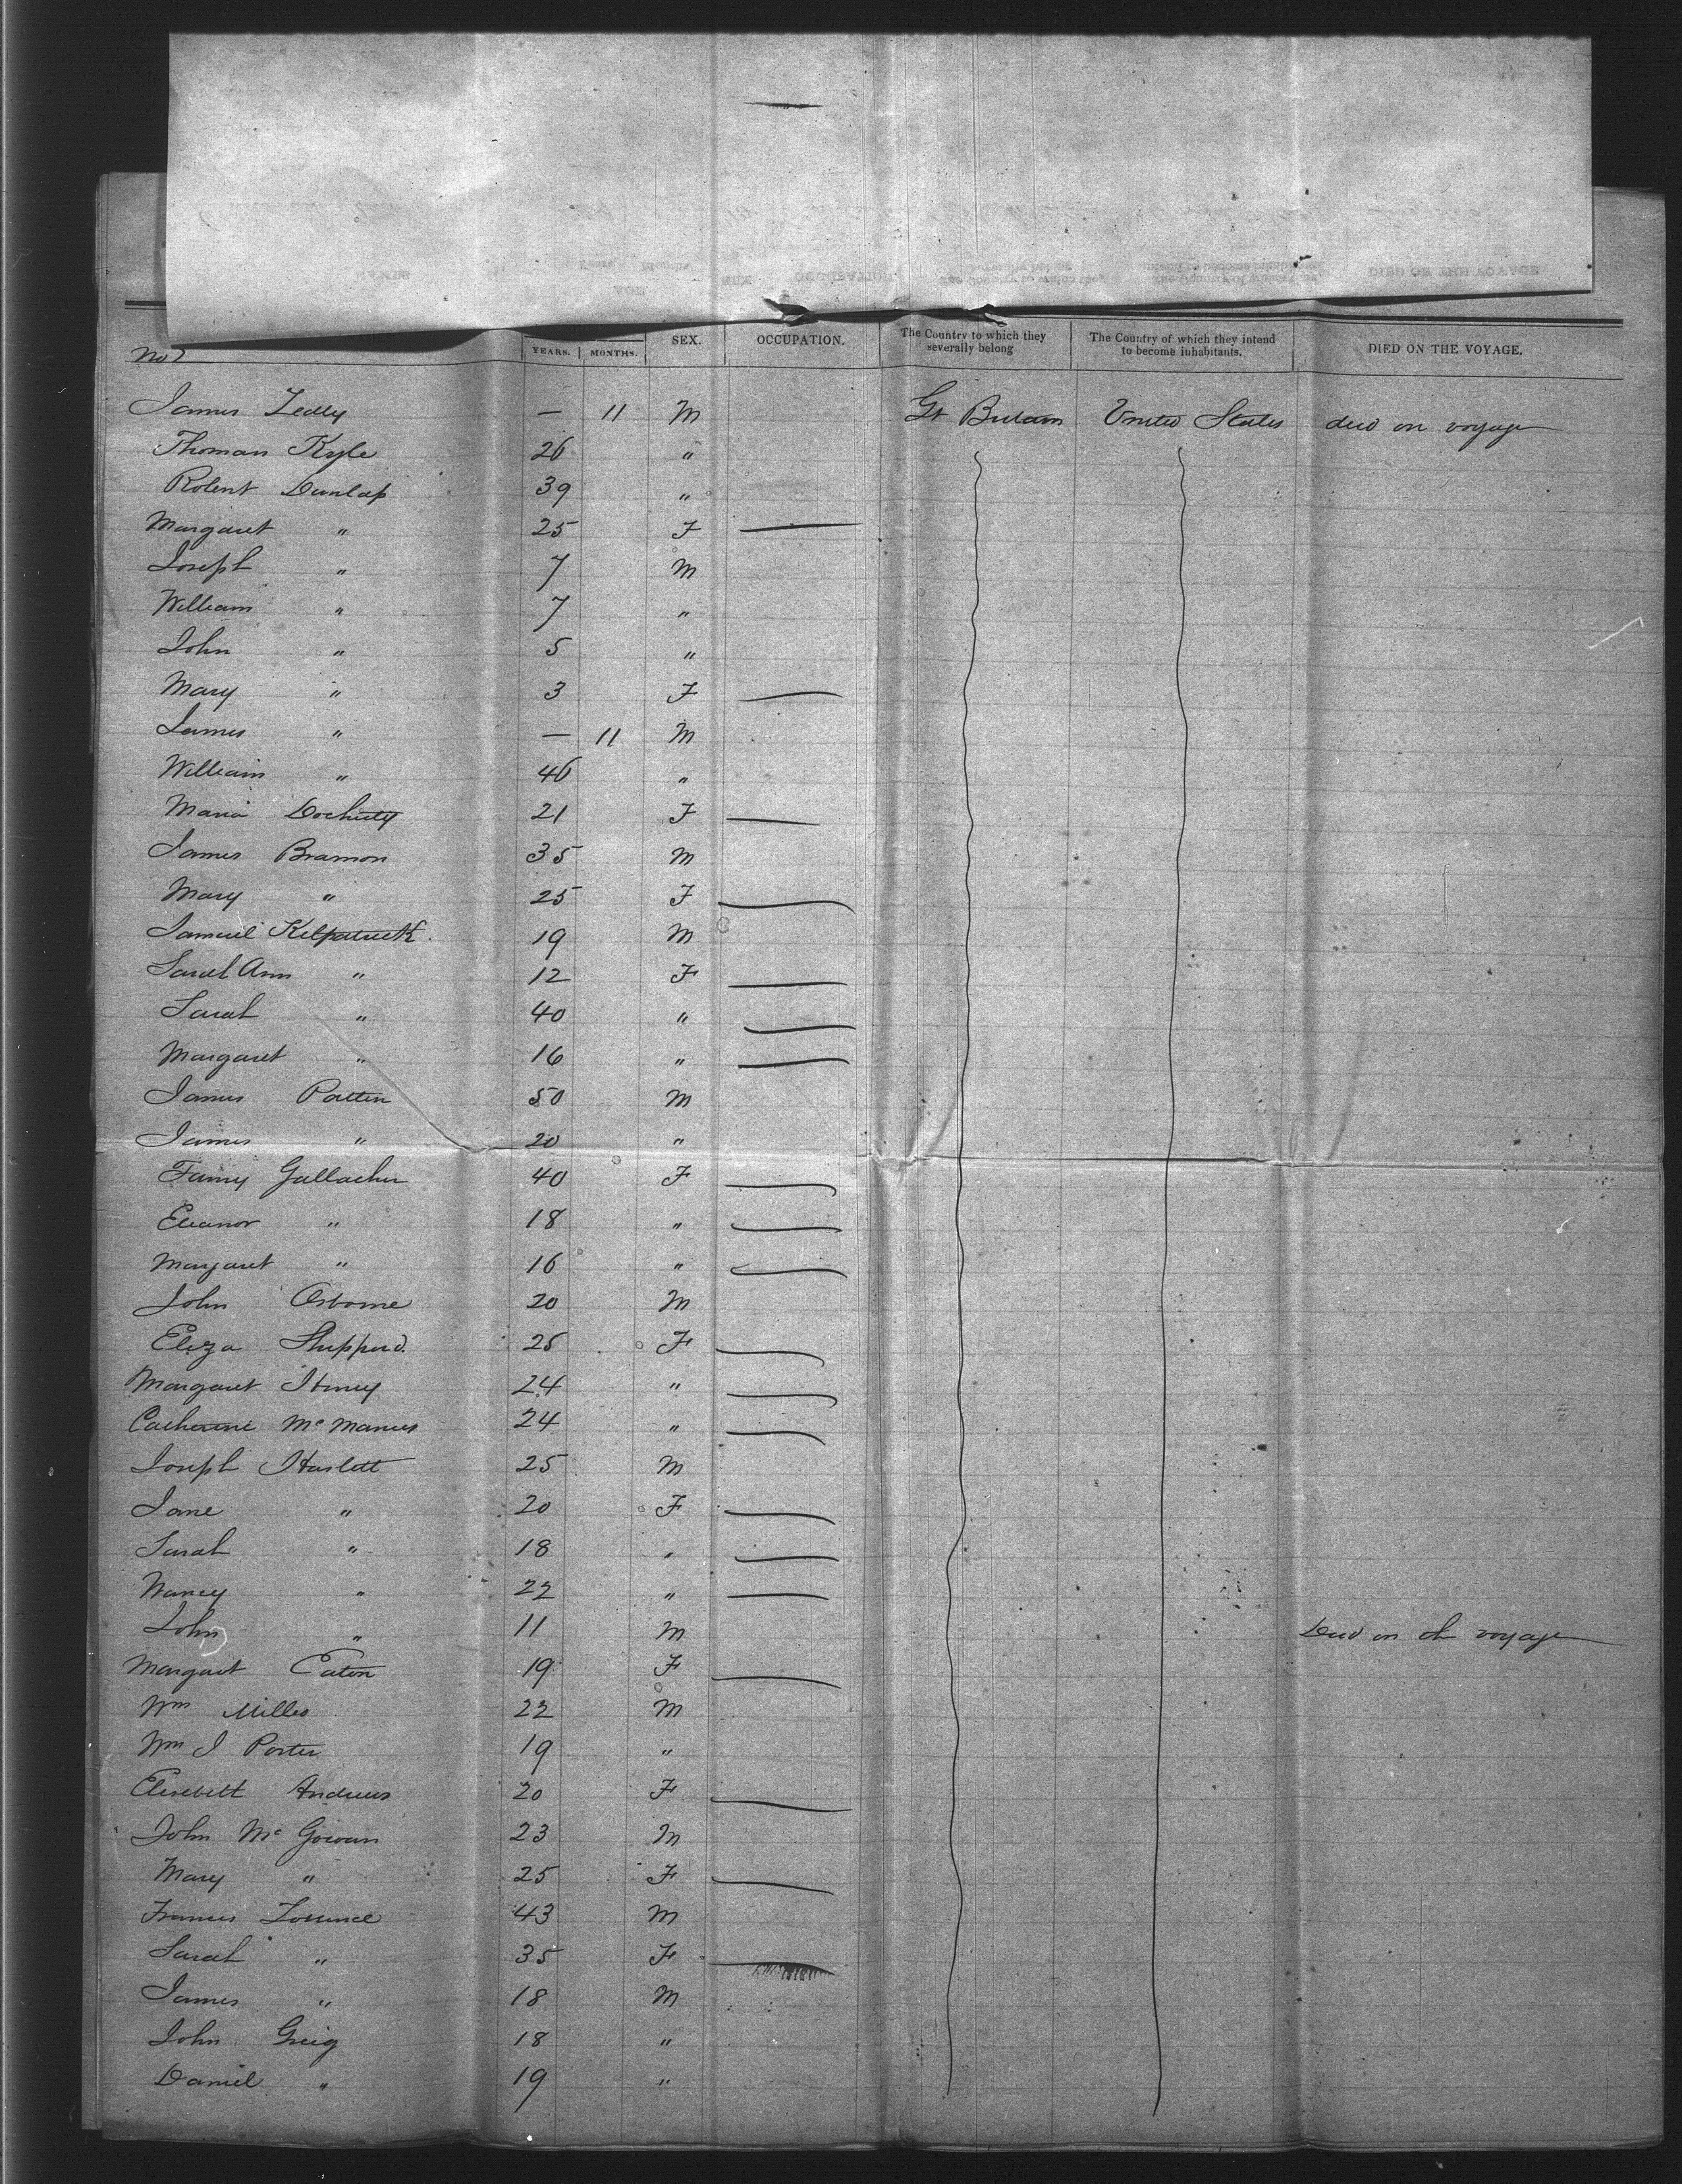 YEARS. MONTHS. SEX. OCCUPATION. The Country to which they severally belong The Country of which they intend to become inhabitants. DIED ON THE VOYAGE.
No 2
James Leddy — 11 M Gt Britain United States died on voyage
Thomas Kyle 26 "
Robert Dunlap 39 "
Margaret " 25 F
Joseph " 7 M
William " 7 "
John " 5 "
Mary " 3 F
James " — 11 M
William " 46 "
Maria Docherty 21 F
James Brannon 35 M
Mary " 25 F
Samuel Kelpatrick 19 M
Sarah Ann " 12 F
Sarah " 40 "
Margaret " 16 "
James Patten 50 M
James " 20 "
Fanny Gallacher 40 F
Eleanor " 18 "
Margaret " 16 "
John Osborne 20 M
Eliza Shepperd 25 F
Margaret 24 "
Catherine McManus 24 "
Joseph Haslett 25 M
Jane " 20 F
Sarah " 18 "
Nancy " 22 "
John " 11 M Died on voyage
Margaret Eaton 19 F
Wm Miller 22 M
Wm J Porter 19 "
Elesebett Andrews 20 F
John McGowan 23 M
Mary " 25 F
Francis 43 M
Sarah " 35 F
James " 18 M
John Greig 18 "
Daniel " 19 "